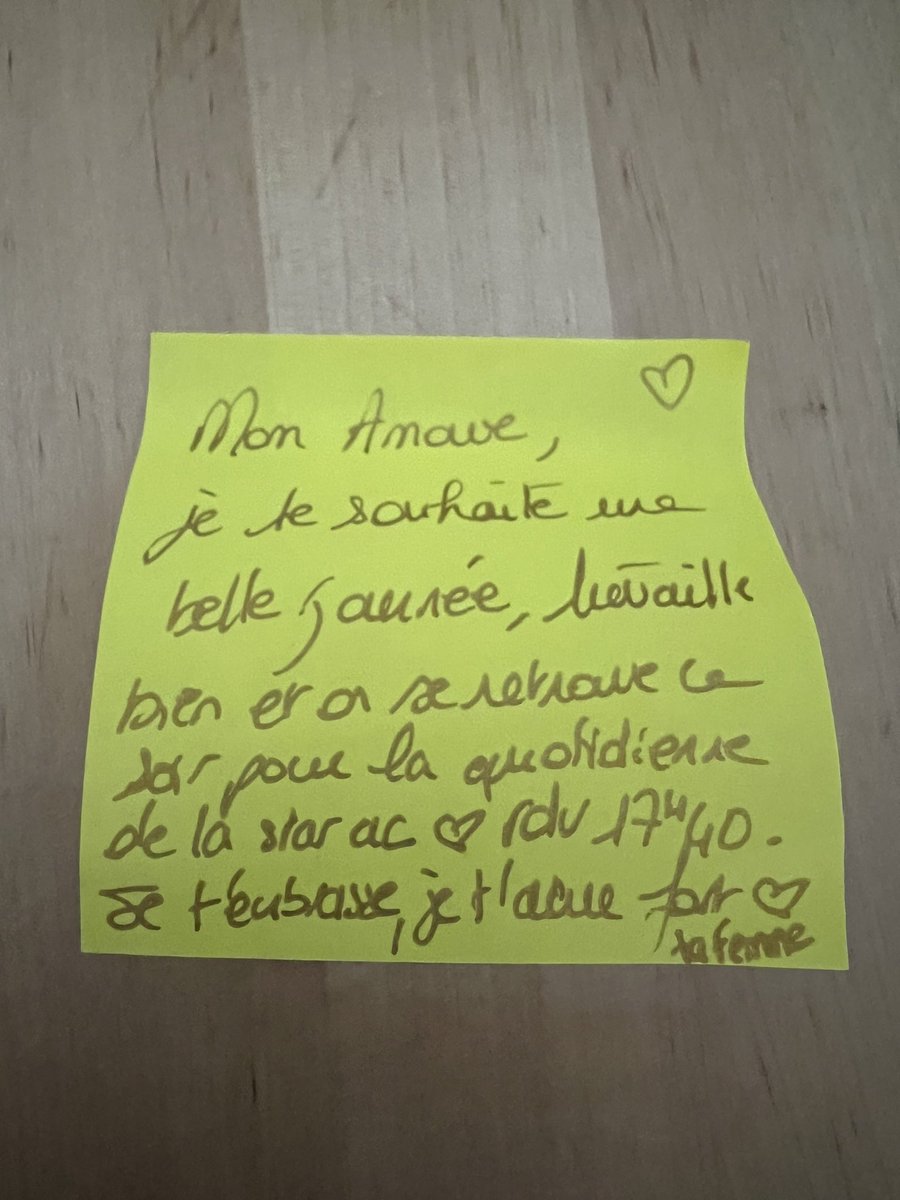 Mon Amour,
je te souhaite une
belle journée, travaille
bien et on se retrouve ce
soir pour la quotidienne
de la star ac ♡ rdv 17H40.
Je t'embrasse, je t'aime fort ♡
ta femme